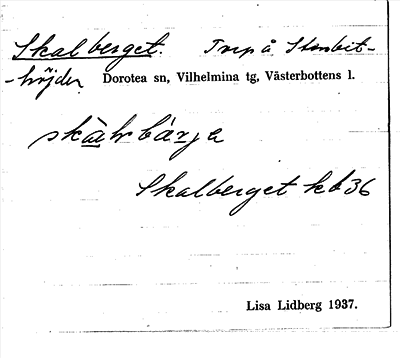 Skalberget. Torp å Stenbit-
-höjden Dorotea sn, Vilhelmina tg, Västerbottens l.
Skalberget kb 36
Lisa Lidberg 1937.